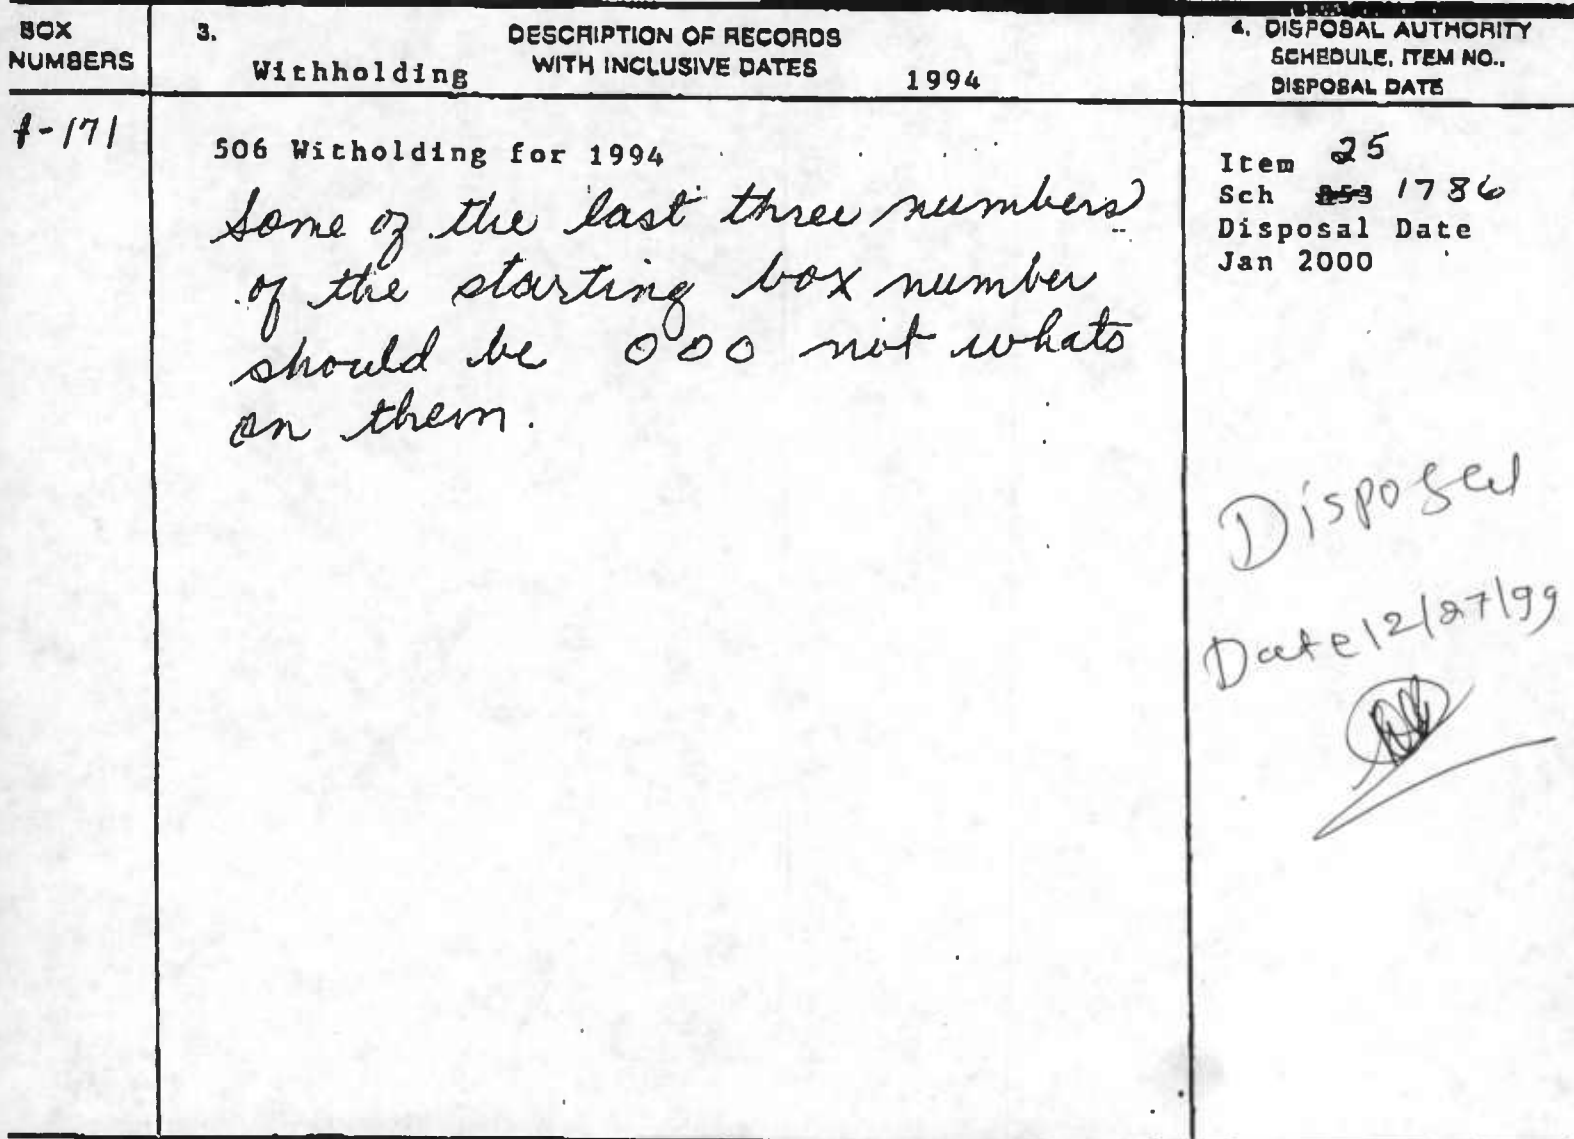 BOX
NUMBERS
3.
DESCRIPTION OF RECORDS
WITH INCLUSIVE DATES
Withholding
1994
4. DISPOSAL AUTHORITY
SCHEDULE, ITEM NO.,
DISPOSAL DATE
1-171
506 Witholding for 1994
Some of the last three numbers
of the starting box number
should be 000 not whats
on them.
Item 25
Sch 853 1786
Disposal Date
Jan 2000
Disposed
Date 12/27/99